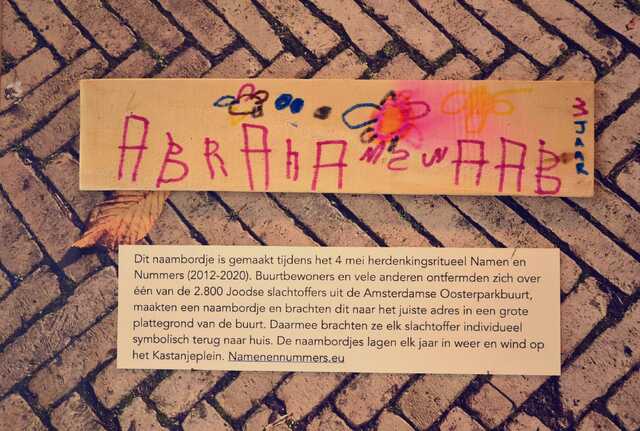 ABRAHAM ZWAAB
3 JAAR
Dit naambordje is gemaakt tijdens het 4 mei herdenkingsritueel Namen en
Nummers (2012-2020). Buurtbewoners en vele anderen ontfermden zich over
één van de 2.800 Joodse slachtoffers uit de Amsterdamse Oosterparkbuurt,
maakten een naambordje en brachten dit naar het juiste adres in een grote
plattegrond van de buurt. Daarmee brachten ze elk slachtoffer individueel
symbolisch terug naar huis. De naambordjes lagen elk jaar in weer en wind op
het Kastanjeplein. Namenennummers.eu